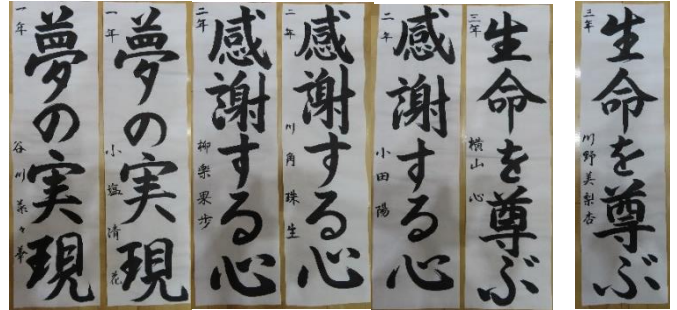 一年
夢の実現
谷川菜々華
一年
夢の実現
小塩清花
二年
感謝する心
柳楽果歩
二年
感謝する心
川角珠生
二年
感謝する心
小田陽
三年
生命を尊ぶ
横山心
三年
生命を尊ぶ
川野美梨杏